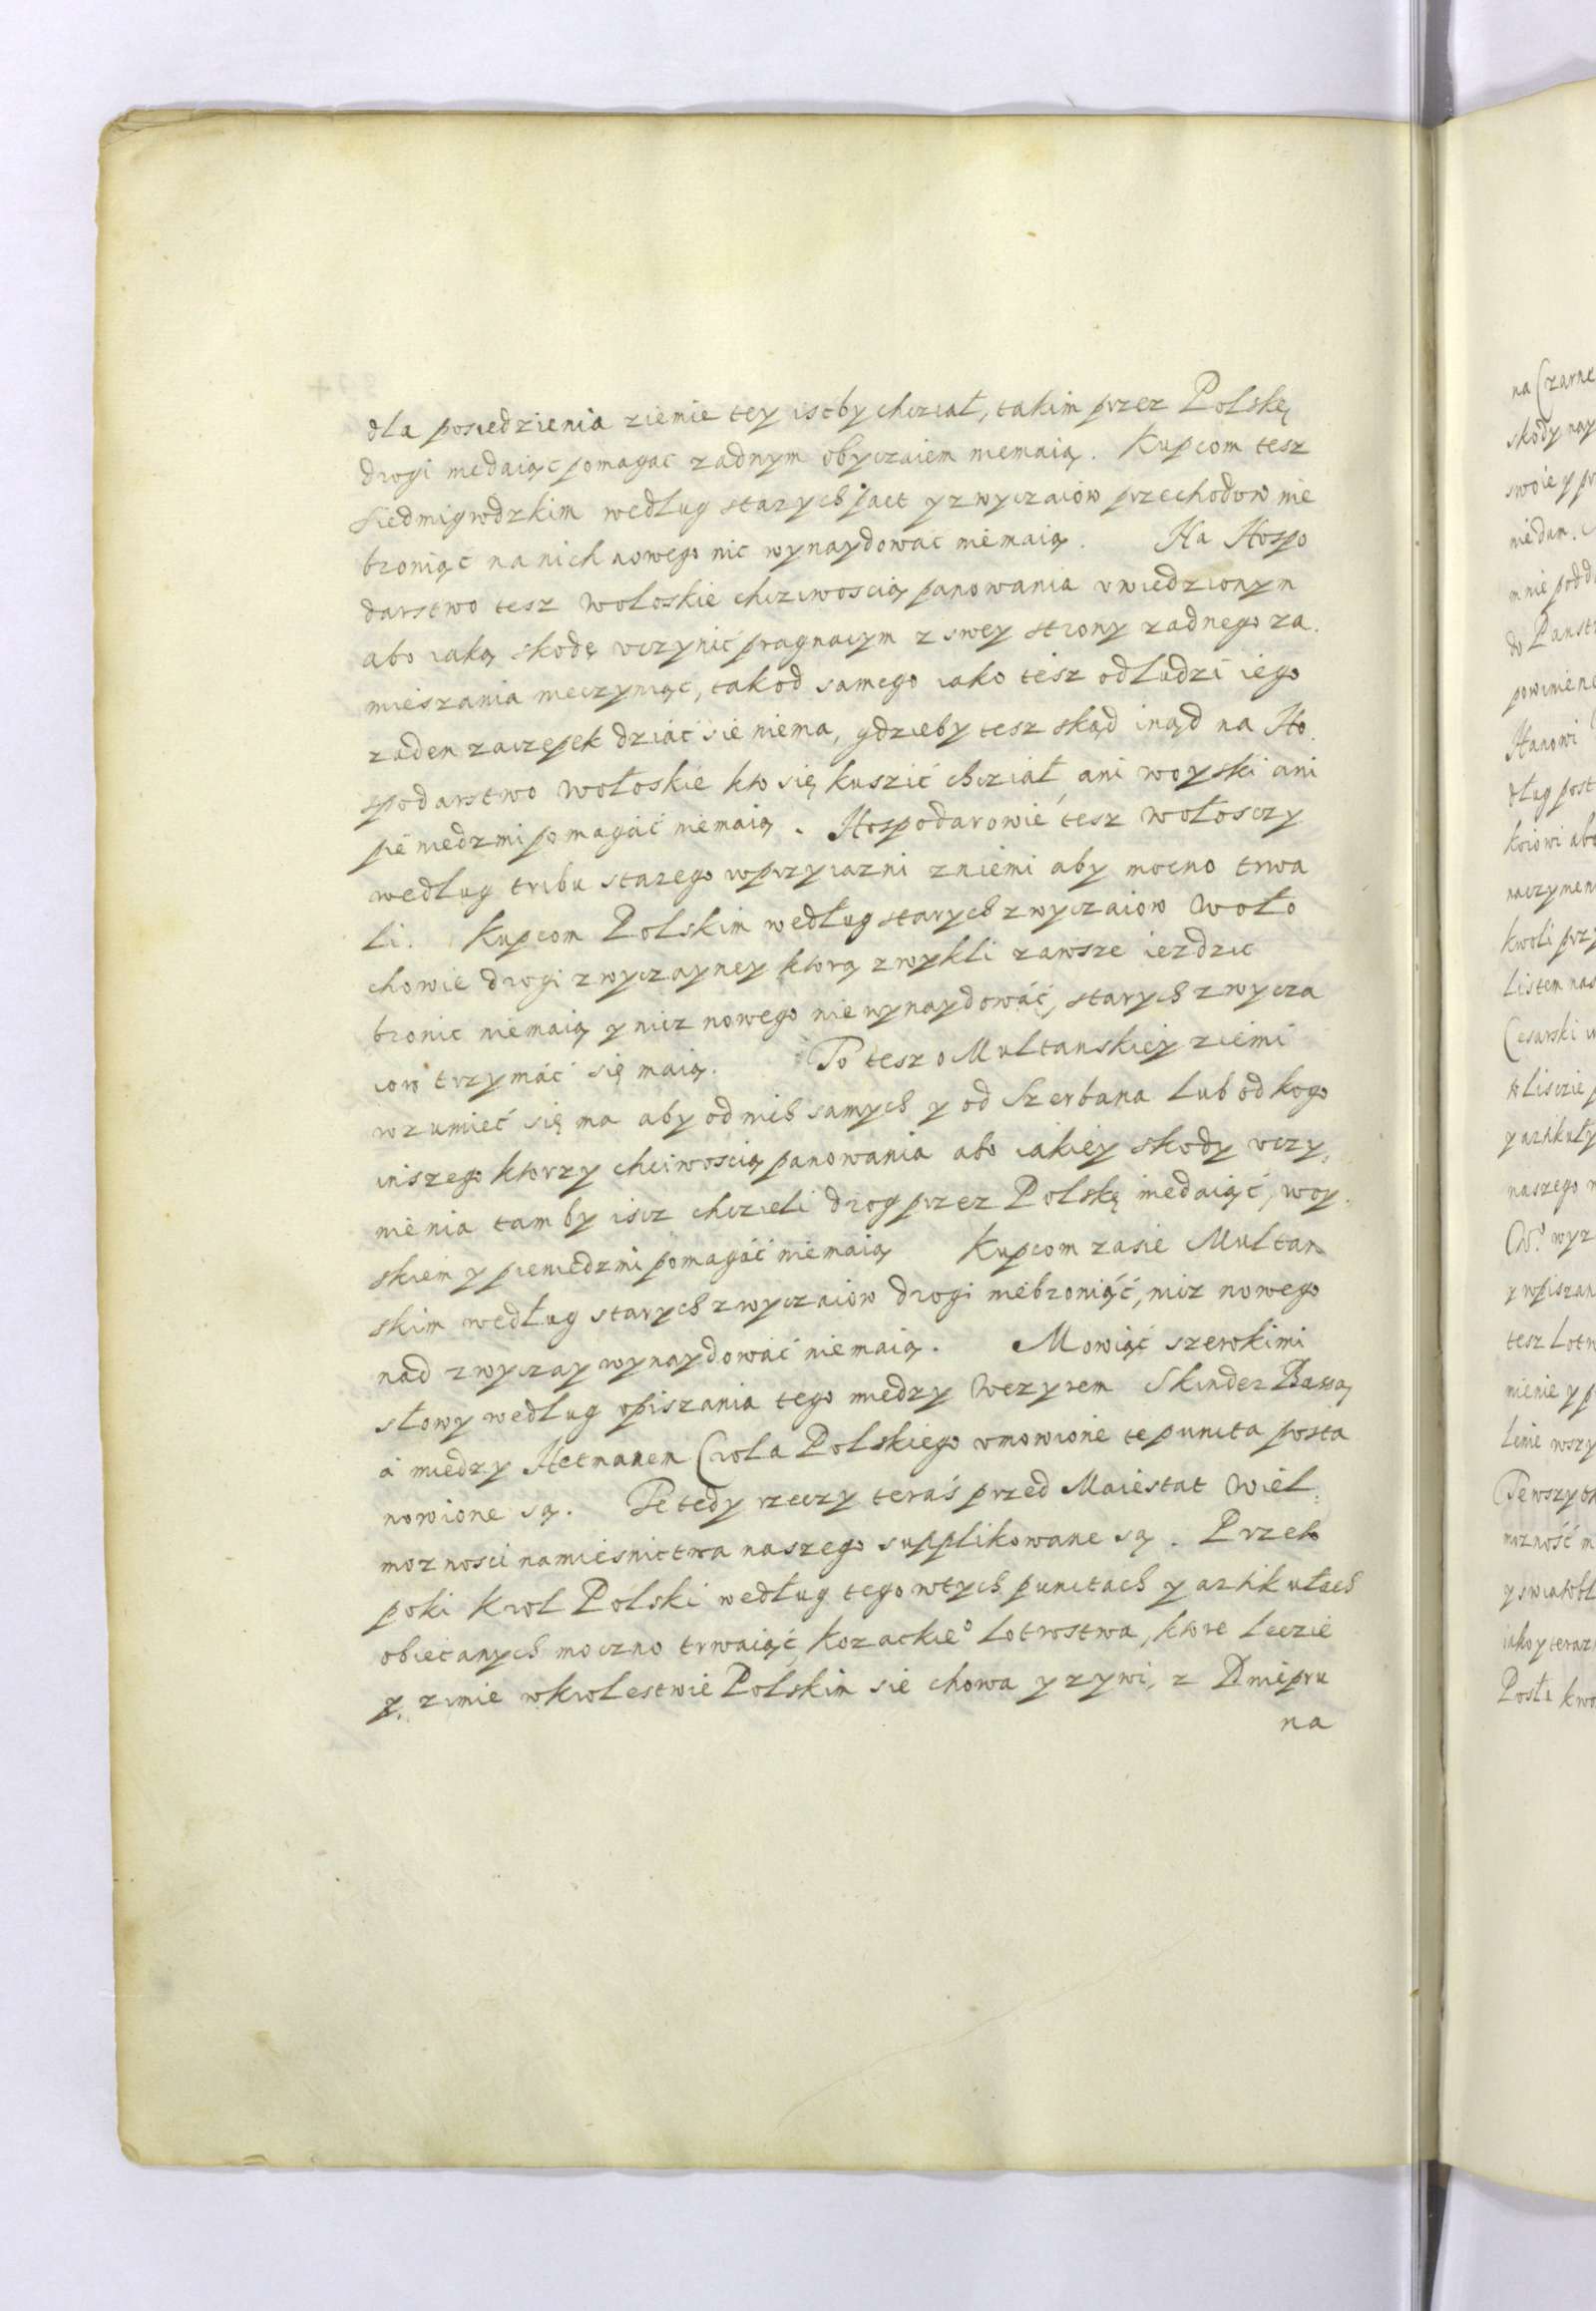 dla posiedzienia ziemie tey iscby chcział, takim przez Polskę
drogi niedaiąc pomagac zadnym obyczaiem niemaią. Kupcom tesz
Siedmigrodzkim według starych pact y zwyczaiow przechodow nie
broniąc na nich nowego nic wynaydowac niemaią. Na Hospo
darstwo tesz Wołoskie chcziwoscią panowania uwiedzionym
abo iaką skodę uczynić pragnacym z swey strony zadnego za
mieszania nieczyniąc, tak od samego iako tesz od ludzi iego
zaden zaczepek dziać sie niema, gdzieby tesz skąd inąd na Ho
spodarstwo Wołoskie kto się kuszić chcział, ani woyski ani
pieniedzmi pomagáć niemaią. Hospodarowie tesz Wołosczy
według tribu starego w przyiazni z niemi aby mocno trwa
li. Kupcom Polskim według starych zwyczaiow Woło
chowie drogi zwyczayney ktorą zwykli zawsze iezdzic
bronic niemaią y nicz nowego nie wynaydowáć, starych zwycza
iow trzymáć się maią. To tesz o Multanskiey ziemi
rozumieć się ma aby od nich samych y od Szerbana lub od kogo
inszego ktorzy chciwoscią panowania abo iakiey skody uczy,
nienia tam by iscz chczieli drog przez Polskę niedaiąć, woy
skiem y pieniedzmi pomagáć niemaią Kupcom zasie Multan
skim według starych zwyczaiow drogi niebroniąć, nicz nowego
nad zwyczay wynaydowáć niemaią. Mowiąć szerokimi
słowy według opiszania tego miedzy Wezyrem Skinder Bassą
á miedzy Hetmanem Crola Polskiego umowione te puncta posta
nowione są. Te tedy rzeczy teraś przed Maiestat Wiel:
moznosci namiesnictwa naszego supplikowane są. Przeto
poki Krol Polski według tego w tych punctach y artikułach
obiecanych moczno trwaiąć, Kozackie° Lotrostwa, ktore leczie
y. zimie w krolestwie Polskim sie chowa y zywi, z Dniepru
na
na Czarne
skody nay
swoie y pr
niedan.
mnie podd
do Panst
powinien
Hanowi
dług post
naczynien
kwoli prz
Listem nas
Cesarski
y artikuły
naszego
wyz
y wpiszan
tesz Lotr
nienie y p
lenie wszy
Te wszytk
mozność
iako y teraz